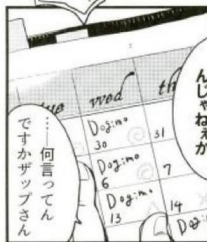 んじゃねぇか
wed
th
Dogimo
30
31
Dogimo
6
7
Dogimo
13
14
Dogi
……何言ってん
ですかザップさん